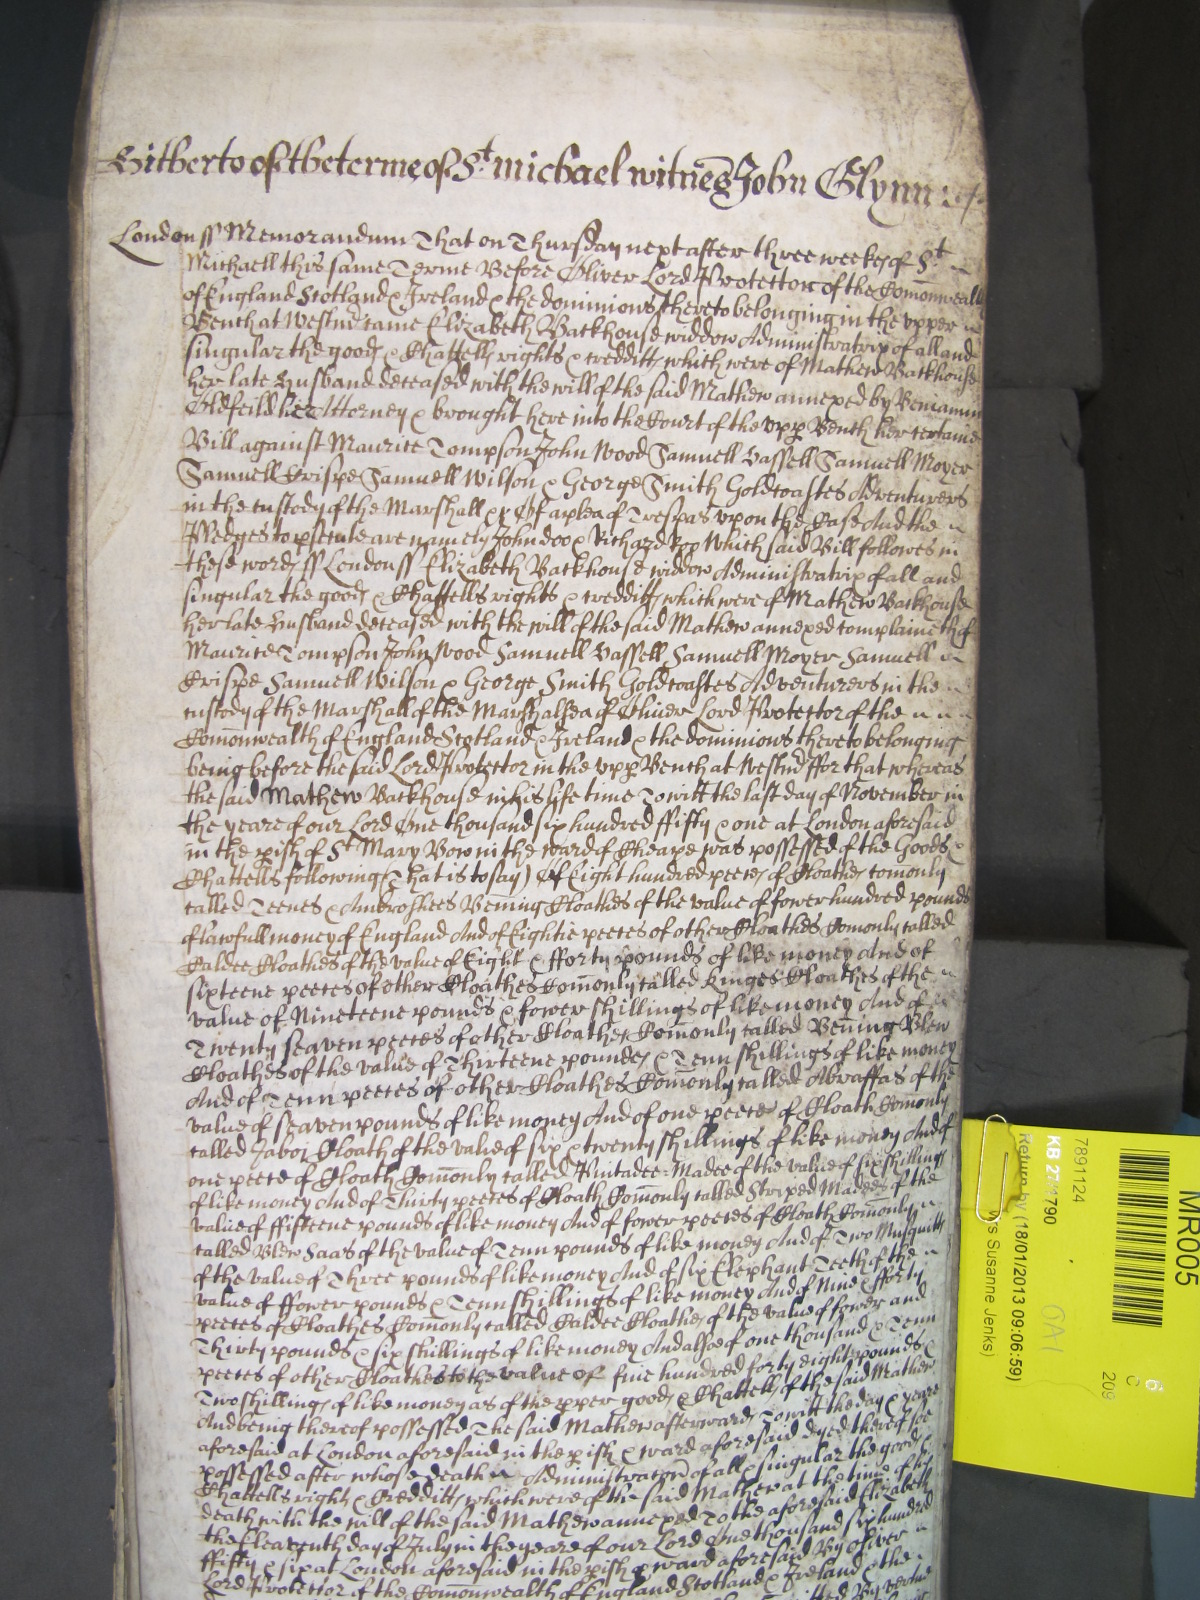 Hitherto of the terme of St. Michael witnes John Glynn
London ss Memorandum That on Thursday next after three weekes of St
Michaell this same Terme Before Oliver Lord Protector of the Comonwealth
of England Scotland & Ireland & the dominions thereto belonging in the upper
Bench at Westmr came Elizabeth Backhouse widdow Administratrix of all and
singular the goods & Chattells rights & credditts which were of Mathew Backhouse
her late Husband deceased with the will of the said Mathew annexed by Beniamin
Oldfeild her Attorney & brought here into the Court of the upp Bench her certaine
Bill against Maurice Tompson John Wood Samuell Vassell Samuell Moyer
Samuell Crispe Samuell Wilson & George Smith Goldcoastes Adventurers
in the custody of the Marshall &c Of a plea of Trespas upon the Case And the
Pledges to psecute are namely John doo & Richard Roo Which said Bill followes in
these words ss London ss Elizabeth Backhouse widdow Administratrix of all and
singular the goods & Chattells rights & credditts which were of Mathew Backhouse
her late Husband deceased with the will of the said Mathew annexed complaineth of
Maurice Tompson John Wood Samuell Vassell Samuell Moyer Samuell
Crispe Samuell Wilson & George Smith Goldcoastes Adventurers in the
custody of the Marshall of the Marshalsea of Oliver Lord Protector of the
Comonwealth of England Scotland & Ireland & the dominions thereto belonging
being before the said Lord Protector in the upp Bench at Westmr ffor that whereas
the said Mathew Backhouse in his life time To witt the last day of November in
the yeare of our Lord One thousand six hundred ffifty & one at London aforesaid
in the pish of St Mary Bow in the ward of Cheape was possessed of the Goods &
Chattells following (That is to say) Of Eight hundred peeces of Cloathes comonly
called Teenes & Ambroshees Bening Cloathes of the value of fower hundred pounds
of lawfull money of England And of Eightie peeces of other Cloathes Comonly called
Caldee Cloathes of the value of Eight & fforty pounds of like money And of
sixteene peeces of other Cloathes Comonly called Kinges Cloathes of the
value of Nineteene pounds & fower shillings of like money And of
Twenty seaven peeces of other Cloathes Comonly called Bening Blew
Cloathes of the value of Thirteene poundes & Tenn shillings of like money
And of Tenn peeces of other Cloathes Comonly called Abraffas of the
value of seaven pounds of like money And of one peece of Cloath Comonly
called Jaboi Cloath of the value of six & twenty shillings of like money And of
one peece of Cloath Comonly called Pintadee Madee of the value of six shillings
of like money And of Thirty peeces of Cloath Comonly called Striped Madees of the
value of ffifteene pounds of like money And of fower peeces of Cloath Comonly
called Blew Saas of the value of Tenn pounds of like money And of Two Musquitts
of the value of Three pounds of like money And of six Elephant Teeth of the
value of ffower pounds & Tenn shillings of like money And of Nine & fforty
peeces of Cloathes Comonly called Caldee Cloathes of the value of fower and
Thirty pounds & six shillings of like money And alsoe of one thousand & Tenn
peeces of other Cloathes to the value of five hundred forty eight pounds &
Two shillings of like money as of the pper goods & Chattells of the said Mathew
And being thereof possessed The said Mathew afterwards To witt the day & yeare
aforesaid at London aforesaid in the pish & ward aforesaid dyed thereof soe
possessed after whose death Administracon of all & singular the goods &
Chattells rights & Credditts which were of the said Mathew at the time of his
death with the will of the said Mathew annexed To the aforesaid Elizabeth
the Eleaventh day of July in the yeare of our Lord One thousand six hundred
ffifty & six at London aforesaid in the pish & ward aforesaid By Oliver
Lord Protector of the Comonwealth of England Scotland & Ireland & the
MR005
7891124
KB 27/1790
Return by (18/01/2013 09:06:59)
Susanne Jenks)
6
C
209